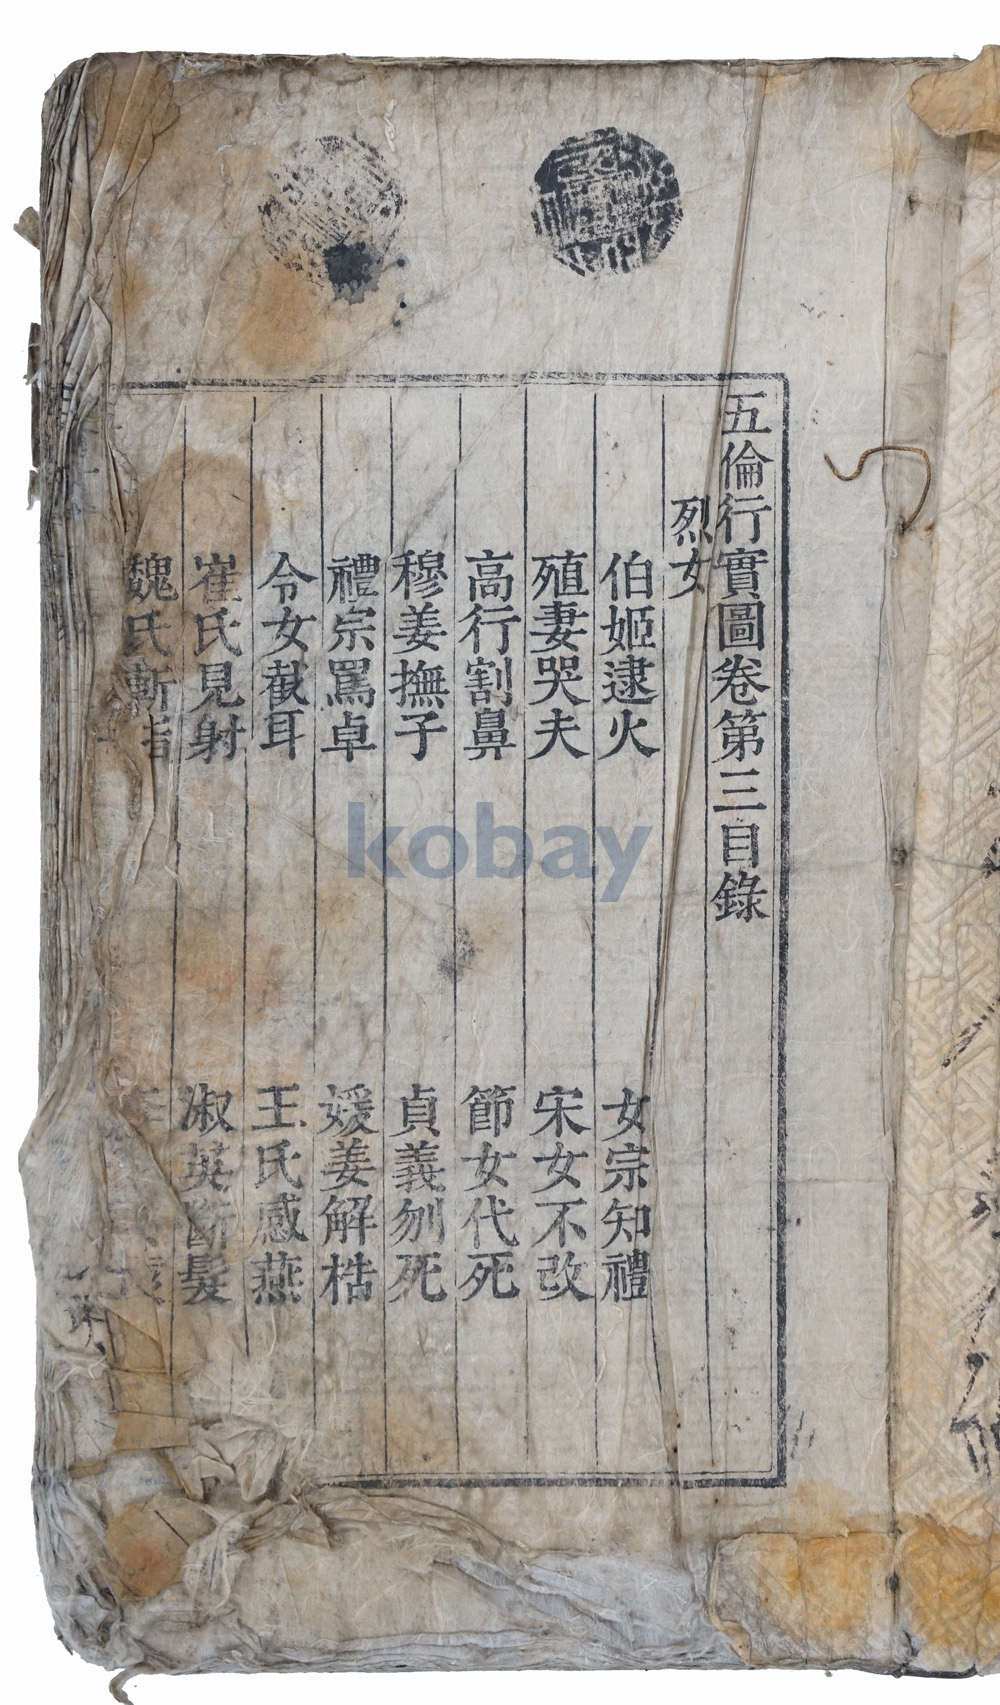 五倫行實圖卷第三目錄
烈女
伯姬逮火 女宗知禮
殖妻哭夫 宋女不改
高行割鼻 節女代死
穆姜撫子 貞義刎死
禮宗罵卓 媛姜解梏
令女截耳 王氏感燕
崔氏見射 淑英斷髮
魏氏斬指
kobay